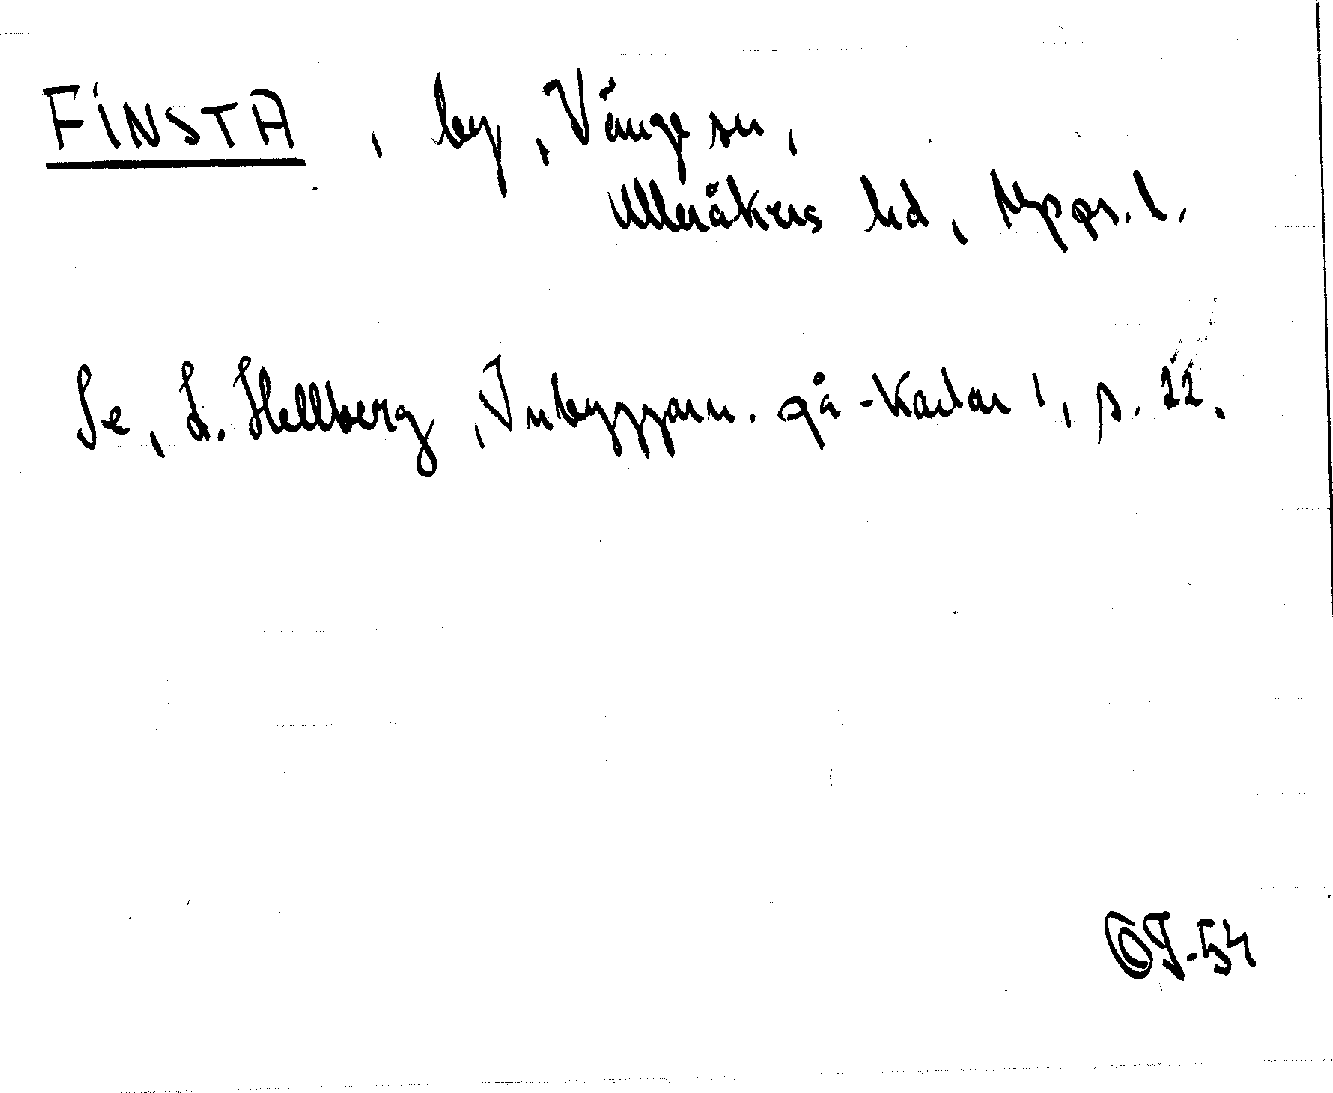 FINSTA, by, Vänge sn,
Ulleråkers hd, Upps. l.
Se, L. Hellberg, Inbyggarn. på -karlar 1, s. 22.
OJ-54